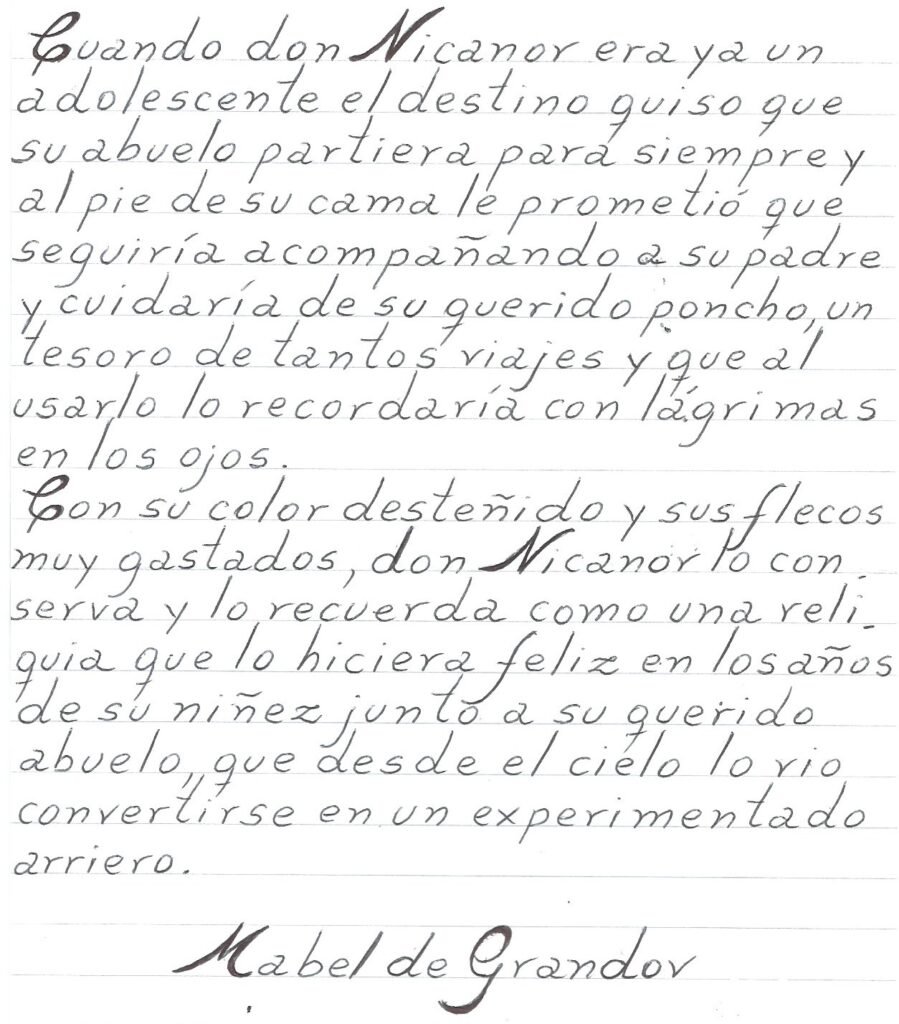 Cuando don Nicanor era ya un
adolescente el destino quiso que
su abuelo partiera para siempre y
al pie de su cama le prometió que
seguiría acompañando a su padre
y cuidaría de su querido poncho, un
tesoro de tantos viajes y que al
usarlo lo recordaría con lágrimas
en los ojos.
Con su color desteñido y sus flecos
muy gastados, don Nicanor lo con_
serva y lo recuerda como una reli_
quia que lo hiciera feliz en los años
de su niñez junto a su querido
abuelo, que desde el cielo lo vio
convertirse en un experimentado
arriero.
Mabel de Grandov